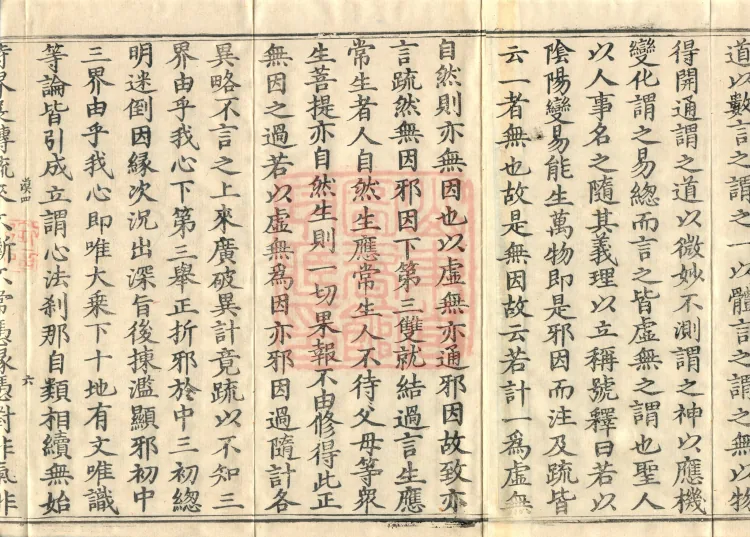 道以數言之謂之一以體言之謂之無以物
得開通謂之道以微妙不測謂之神以應機
變化謂之易總而言之皆虛無之謂也聖人
以人事名之隨其義理以立稱號釋曰若以
陰陽變易能生萬物即是邪因而注及疏皆
云一者無也故是無因故云若計一為虛無
自然則亦無因也以虛無亦通邪因故致亦
言疏然無因邪因下第三雙就結過言生應
常生者人自然生應常生人不待父母等眾
生菩提亦自然生則一切果報不由修得此正
無因之過若以虛無為因亦邪因過隨計各
異略不言之上來廣破異計竟疏以不知三
界由乎我心下第三舉正折邪於中三初總
明迷倒因緣次況出深旨後揀濫顯邪初中
三界由乎我心即唯大乘下十地有文唯識
等論皆引成立謂心法剎那自類相續無始
漠四
六